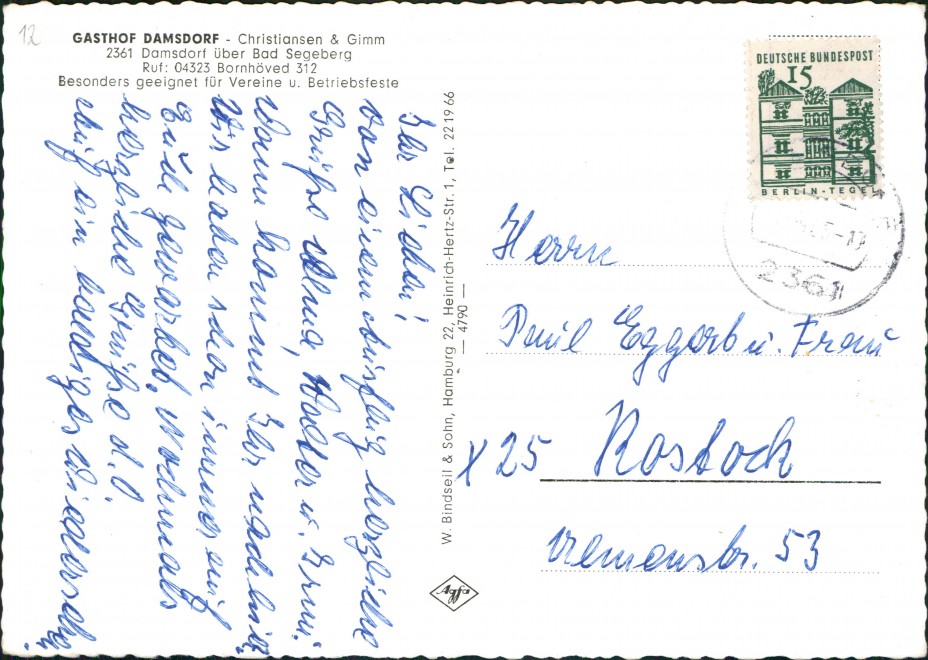 12
GASTHOF DAMSDORF - Christiansen & Gimm
2361 Damsdorf über Bad Segeberg
Ruf: 04323 Bornhöved 312
Besonders geeignet für Vereine u. Betriebsfeste
Ihr Lieben!
Von einem Ausflug herzliche
Grüße Alma, Walter u. Irmi.
Wann kommt Ihr
Wir haben schon immer auf
Euch gewartet. Nochmals
herzliche Grüße
auf ein baldiges Wiedersehn.
W. Bindseil & Sohn, Hamburg 22, Heinrich-Hertz-Str. 1, Tel. 22 19 66
— 4790 —
Agfa
DEUTSCHE BUNDESPOST
15
BERLIN-TEGEL
2361
Herrn
Paul Eggert u. Frau
X 25 Rostock
53